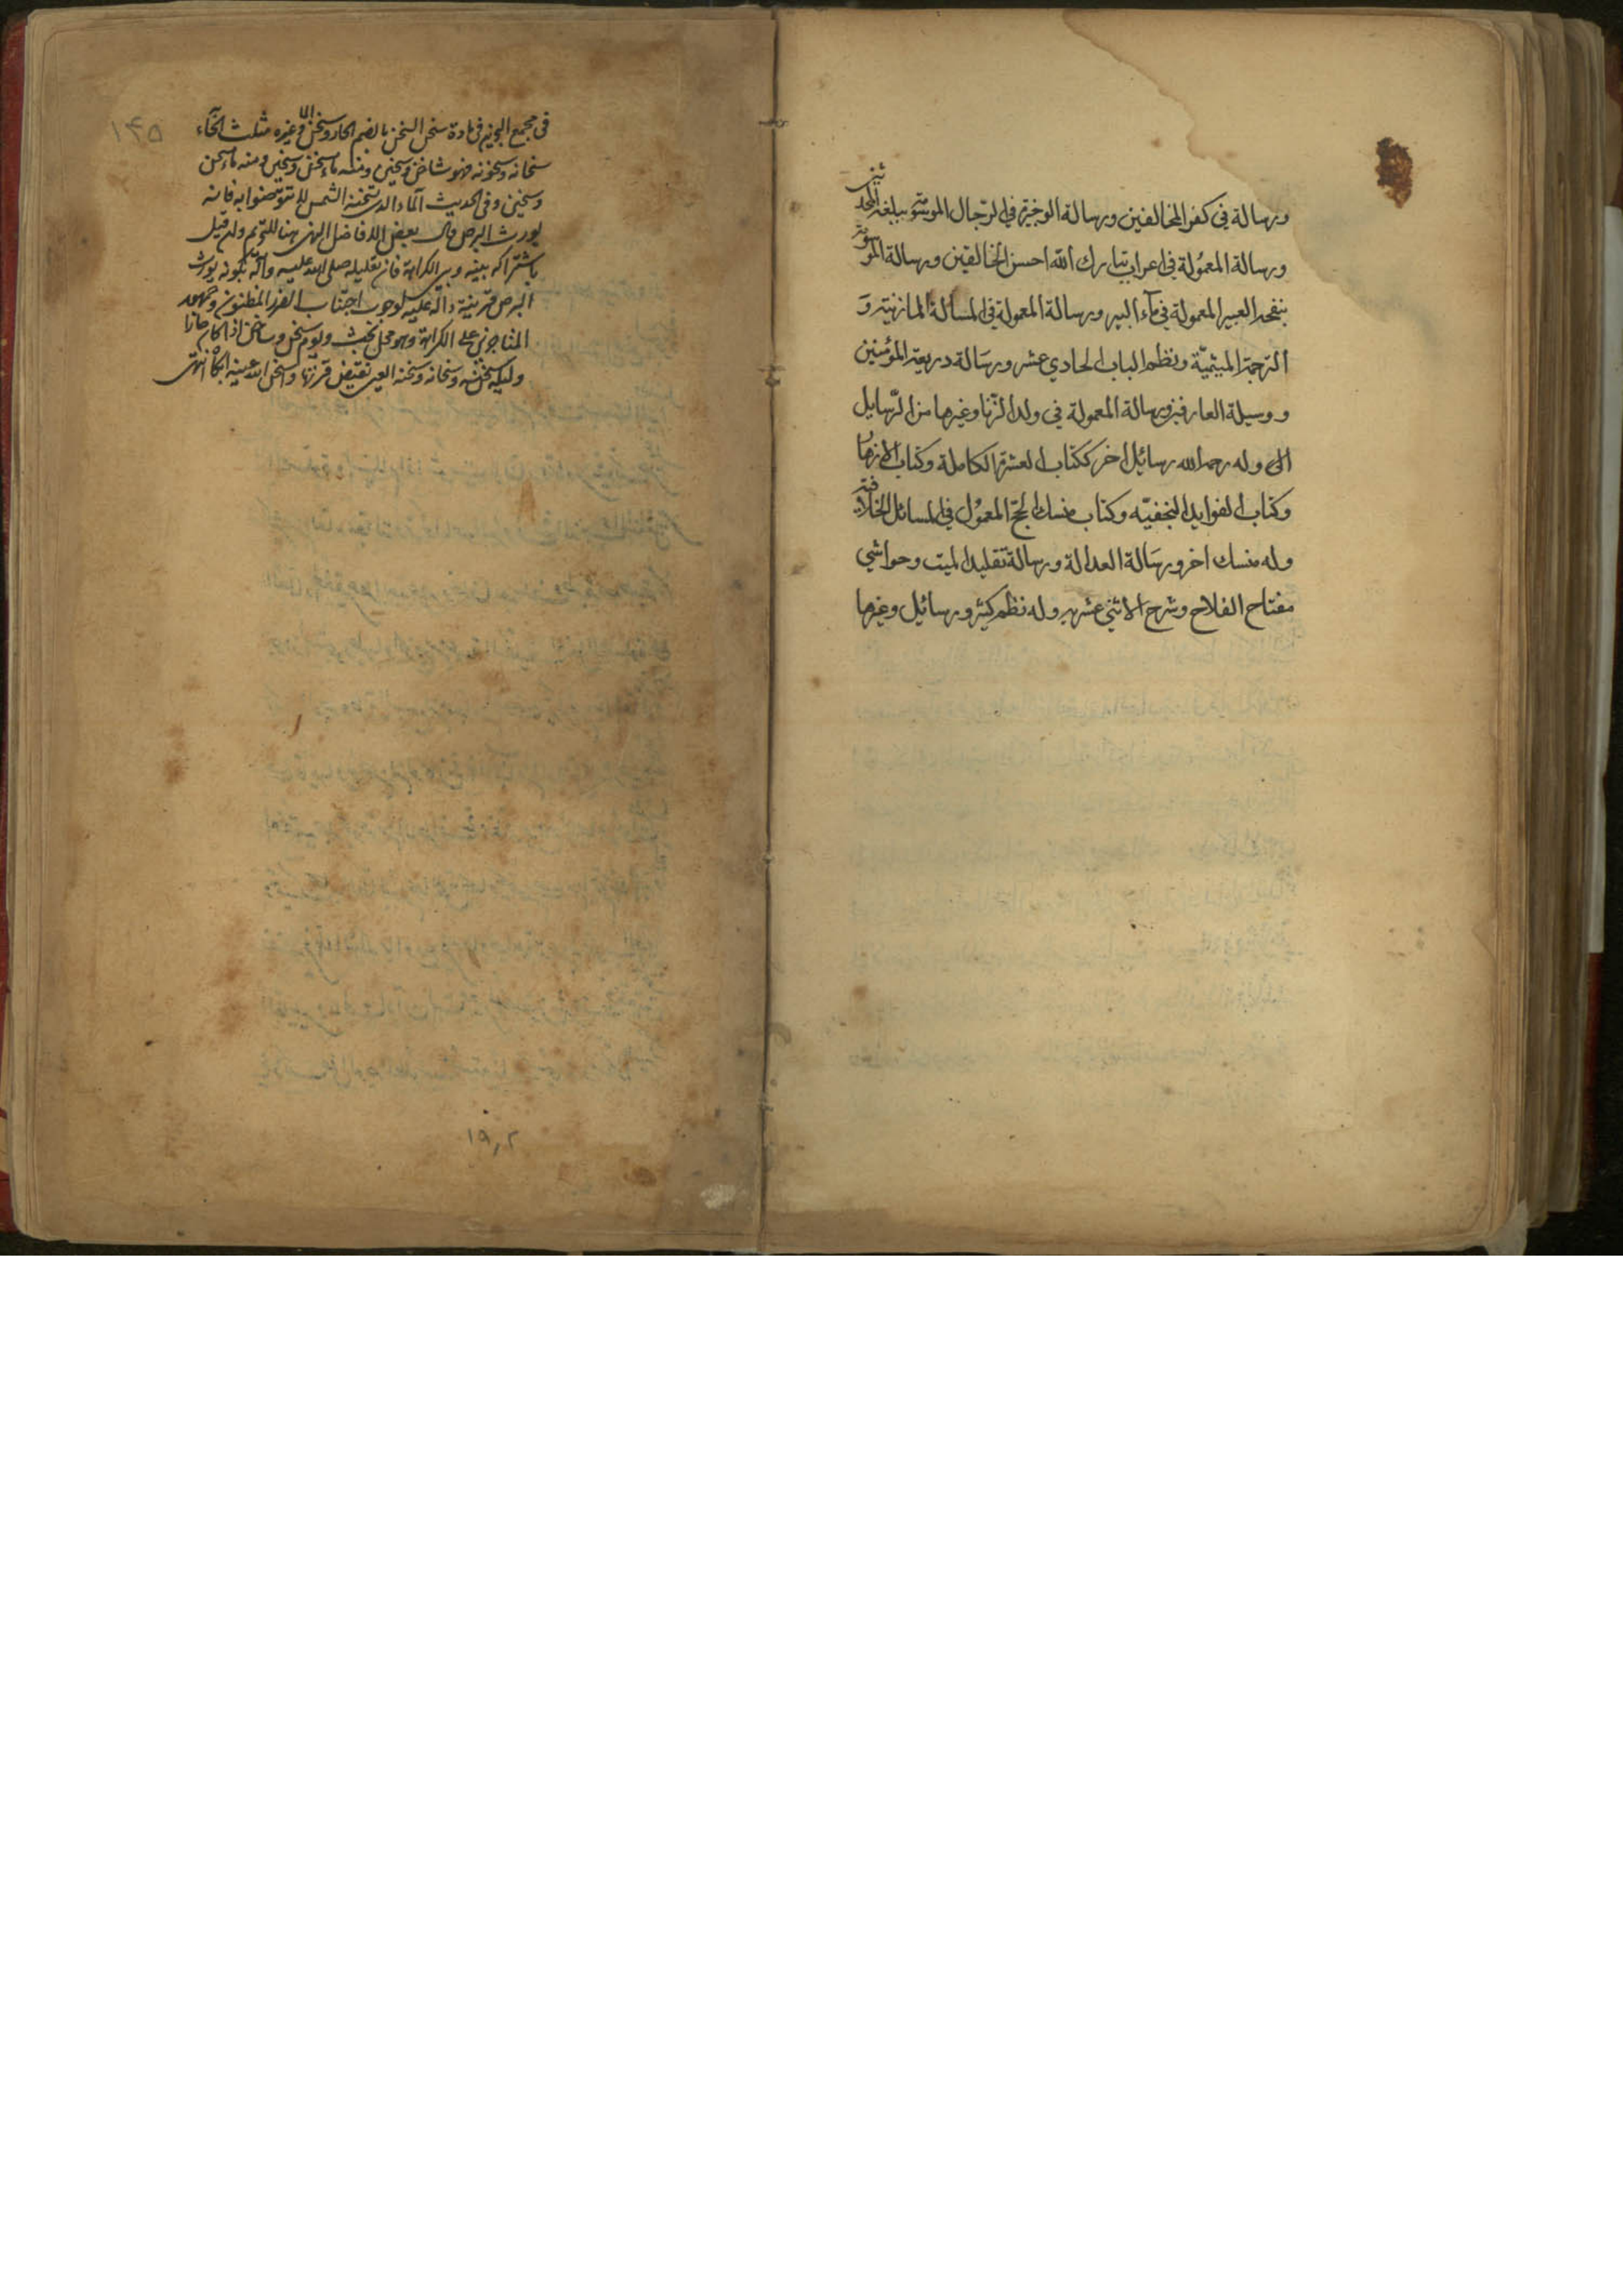 ورسالة في كفر المخالفين ورسالة الوجيزة في الرجال الموسّمة ببلغة المحدثين
ورسالة المعمولة في اعراب تبارك الله احسن الخالقين ورسالة الموسومة
بنفحة العبير المعمولة في مآء البير ورسالة المعمولة في المسألة المازنية و
الترجمة الميثميّة ونظم الباب الحادي عشر ورسالة ذريعة المؤمنين
ووسيلة العارفين ورسالة المعمولة في ولد الزّنا وغيرها من الرّسايل
الى وله رحمه الله رسائل اخر ككتاب العشرة الكاملة وكتاب الازهار
وكتاب الفوايد النجفيّه وكتاب منسك الحجّ المعمول في المسائل الخلافية
وله منسك اخر ورسالة العدالة ورسالة تقليد الميت وحواشي
مفتاح الفلاح وشرح الاثني عشريه وله نظم كثير ورسائل وغيرها
١٣٥
في مجمع البحرين في مادة سخن السخن بالضم الحار وسخن الماء وغيره مثلث الخاء
سخانه وسخونه فهو ساخن وسخين ومنه ماء سخن وسخين ومنه ماء سخن
وسخين وفي الحديث الماء الذي تسخنه الشمس لا تتوضئوا به فانه
يورث البرص قال بعض الافاضل النهي هنا للتحريم وان قيل
باشتراكه بينه وبين الكراهة فان تعليله صلى الله عليه وآله بكونه يورث
البرص قرينة دالة عليه لوجوب اجتناب الضرر المظنون وجمهور
المتأخرين على الكراهة وهو محل بحث ويوم سخن وساخن اذا كان حارا
وليلة سخنه وسخانه وسخنه العين نقيض قرتها واسخن الله عينه ابكاه انتهى
١٩٫٢